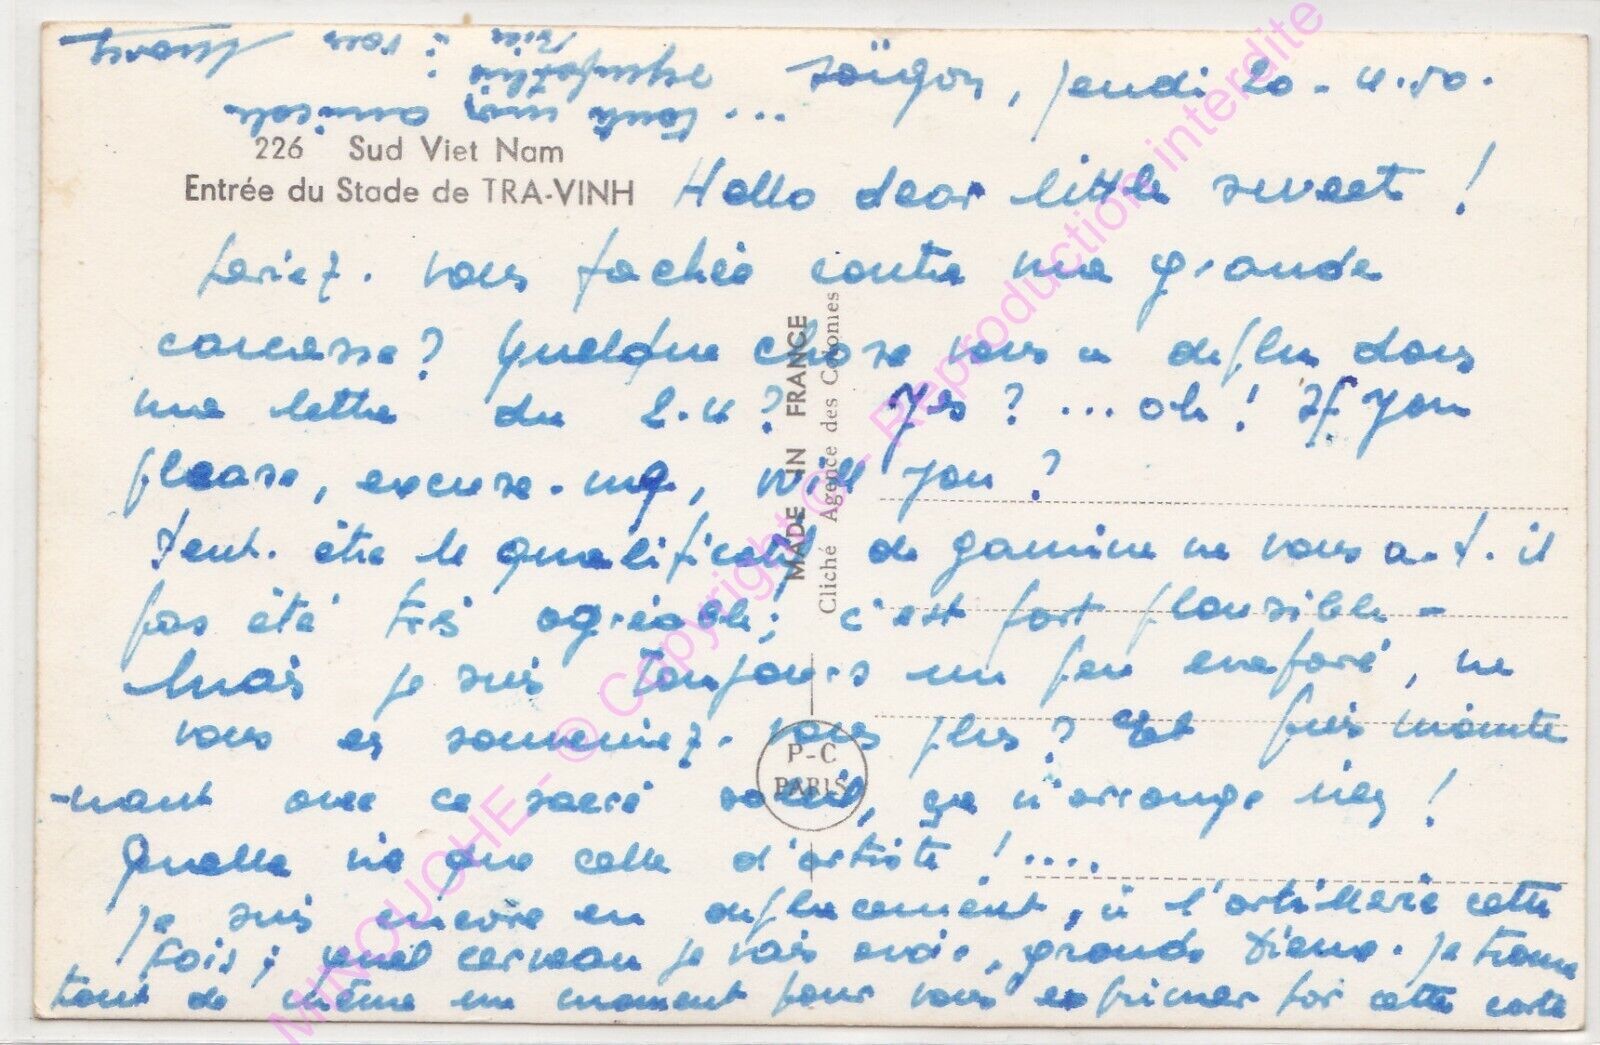 Saïgon, jeudi 20-4.50.
226 Sud Viet Nam
Entrée du Stade de TRA-VINH
Hello dear little sweet !
seriez-vous fachée contre ma grande
carcasse ? Quelque chose vous a deplu dans
ma lettre du 2.4 ? Yes ? ... oh ! If you
please, excuse-me, will you ?
Peut-être le qualificatif de gamine ne vous a-t-il
pas été très agréable ; c'est fort plausible -
Mais je suis toujours un peu evaporé, ne
vous en souveniez-vous plus ? Et puis mainte
-nant avec ce sacré soleil, ça n'arrange rien !
Quelle vie que celle d'artiste ! ....
Je suis encore en deplacement, à l'artillerie cette
fois ; quel cerveau je vais avoir, grands Dieux. Je trouve
tout de même un moment pour vous exprimer par cette carte
toute mon amicale ...
sympathie.
Bien à vous
MADE IN FRANCE
Cliché Agence des Colonies
P-C
PARIS
MINOUCHE - © Copyright © - Reproduction interdite